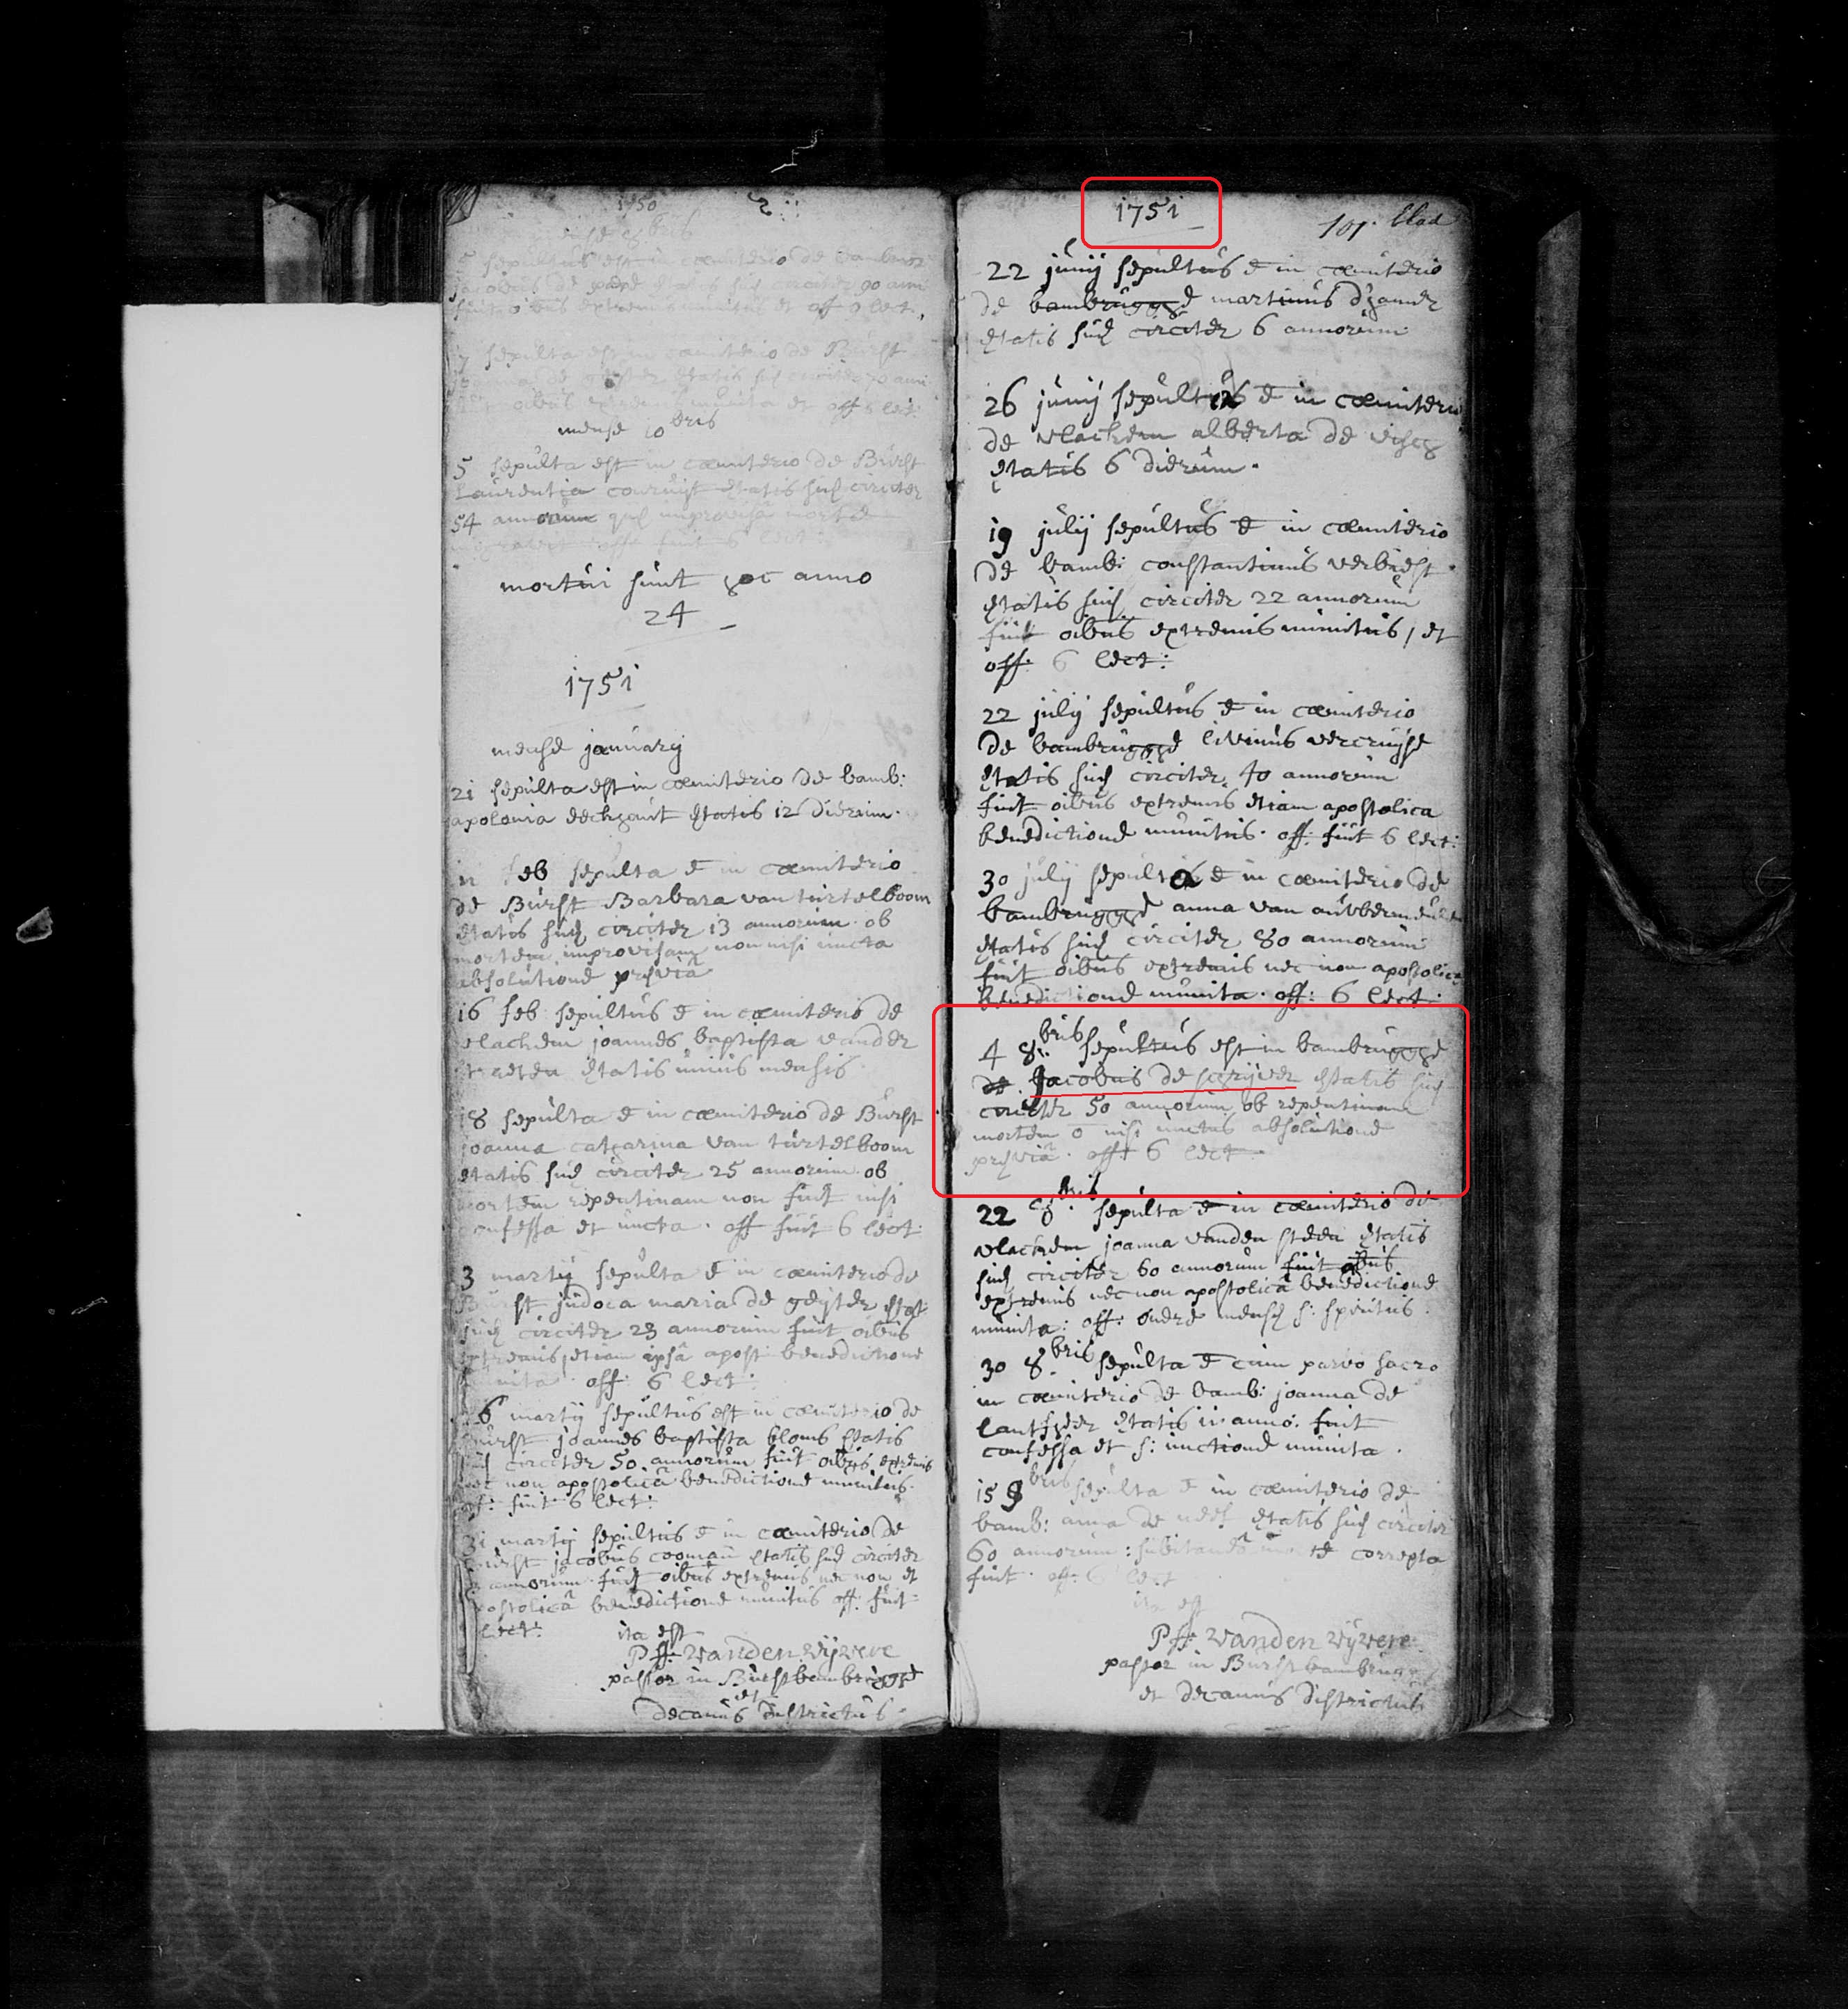 1750
mense 8bris
sepultus est in cœmiterio de
jacobus de etatis suę circiter 90
fuit oibus extremis munitus et off 9 lect.
7 sepulta est in cœmiterio de Burst
etatis suę circiter
oibus extremis munita et off 6 lect:
mense 10bris
5 sepulta est in cœmiterio de Burst
Laurentia etatis suę circiter
54 annorum quę improvisa morte
fuit 6 lect:
mortui sunt hoc anno
24
1751
mense january
21 sepulta est in cœmiterio de bamb:
apolonia ętatis 12 dierum.
feb sepulta ē in cœmiterio
de Burst Barbara van turtelboom
ętatis suę circiter 13 annorum. ob
mortem improvisam non nisi uncta
absolutione pręviâ
16 feb: sepultus ē in cœmiterio de
vlachem joannes baptista vander
straeten ętatis unius mensis.
18 sepulta ē in cœmiterio de Burst
joanna catharina van turtelboom
ętatis suę circiter 25 annorum. ob
mortem repentinam non fuit nisi
confessa et uncta. off fuit 6 lect:
3 martij sepulta ē in cœmiterio de
Burst judoca maria de geijter ętat:
suę circiter 23 annorum fuit oibus
extremis, etiam ipsâ apost: benedictione
munita. off: 6 lect:
6 martij sepultus est in cœmiterio de
Burst joannes baptista bloms ętatis
suę circiter 50 annorum fuit oibus extremis
nec non apostolicâ benedictione munitus.
off: fuit 6 lect:
31 martij sepultus ē in cœmiterio de
Burst jacobus cooman ętatis suę circiter
annorum. fuit oibus extremis nec non et
apostolicâ benedictione munitus off: fuit
lect:
ita est
P ff: vanden vijvere
pastor in Burst bambrugge
et
decanus districtus.
1751
101. blad
22 junij sepultus ē in cœmiterio
de bambrugge martinus
ętatis suę circiter 6 annorum
26 junij sepulta ē in cœmiterio
de vlachem alberta de
ętatis 6 dierum.
19 julij sepultus ē in cœmiterio
de bamb: constantinus verbiest.
ętatis suę circiter 22 annorum
fuit oibus extremis munitus, et
off: 6 lect:
22 julij sepultus ē in cœmiterio
de bambrugge livinus vercruijse
ętatis suę circiter 40 annorum
fuit oibus extremis etiam apostolica
benedictione munitus. off: fuit 6 lect:
30 julij sepulta ē in cœmiterio de
bambrugge anna van
ętatis suę circiter 80 annorum
fuit oibus extremis nec non apostolica
benedictione munita. off: 6 lect.
4 8bris sepultus est in bambrugge
de jacobus de schrijver ętatis suę
circiter 50 annorum ob repentinam
mortem ō nisi unctus absolutione
pręviâ. off: 6 lect.
22 8bris sepulta ē in cœmiterio de
vlachem joanna vanden steen ętatis
suę circiter 60 annorum fuit oibus
extremis nec non apostolicâ benedictione
munita: off: onere mensę s: spiritus.
30 8bris sepulta ē cum parvo sacro
in cœmiterio de bamb: joanna de
lantsheer ętatis 11 anno: fuit
confessa et s: unctione munita.
15 9bris sepulta ē in cœmiterio de
bamb: anna de ętatis suę circiter
60 annorum: subitanea morte correpta
fuit. off: 6 lect
ita est
P ff: vanden vijvere
pastor in Burst bambrugge
et decanus districtus